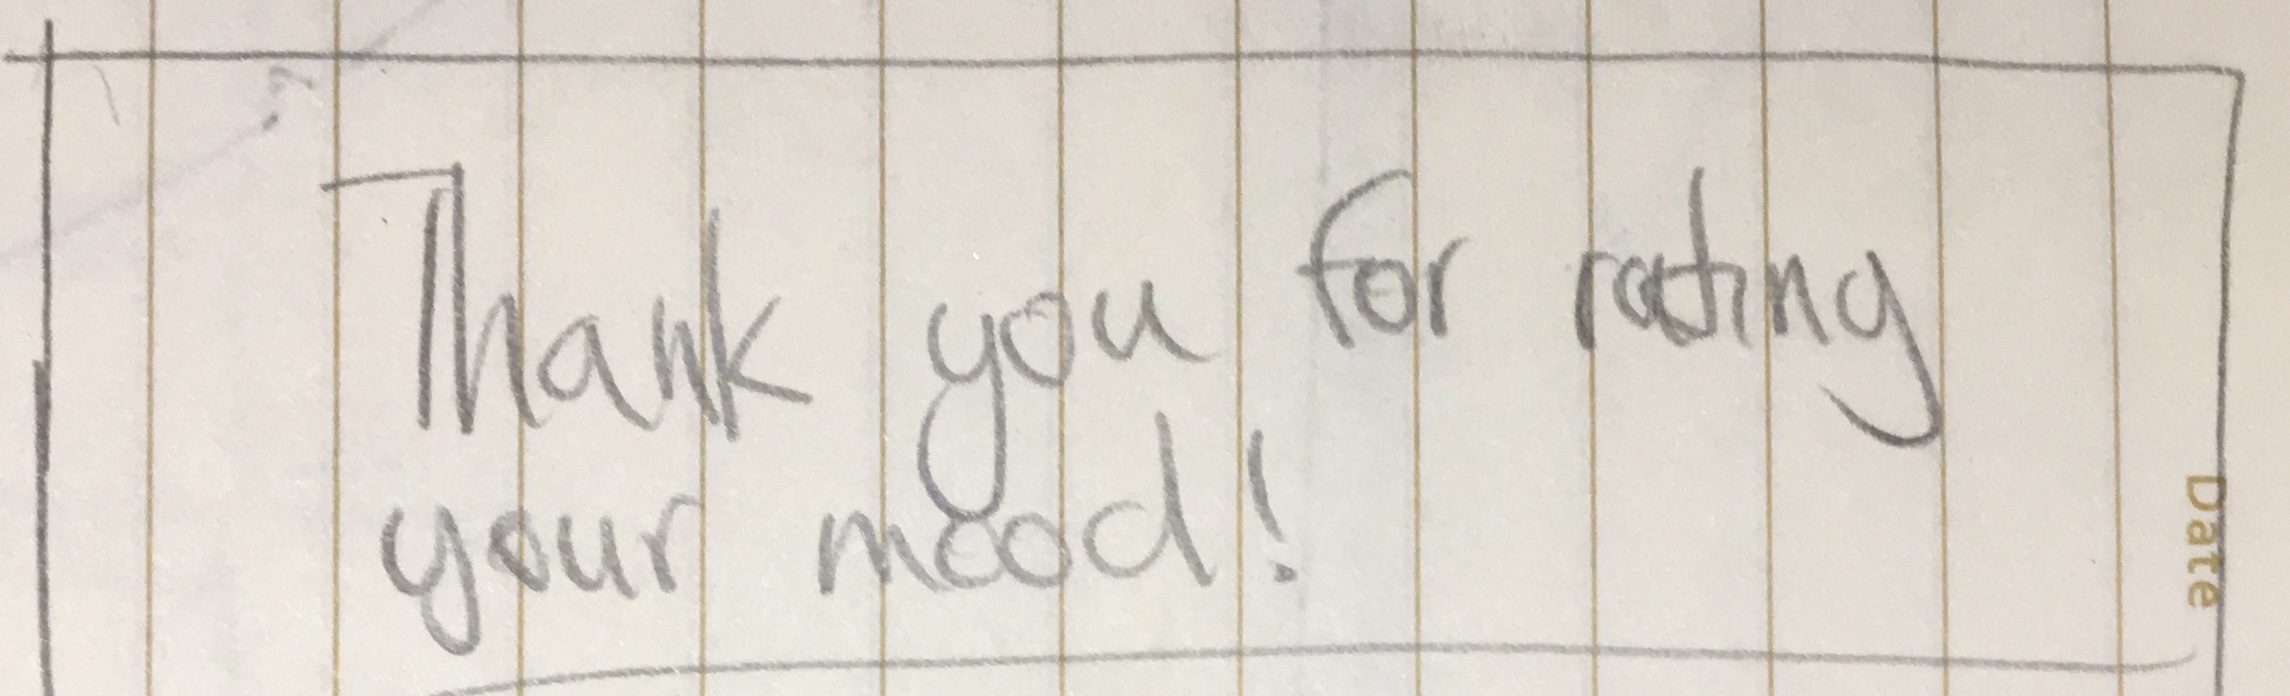 Thank you for rating
your mood!
Date